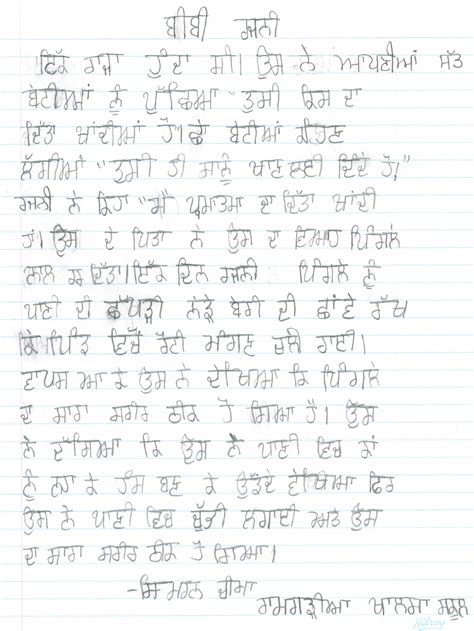 ਬੀਬੀ ਰਜਨੀ
ਇੱਕ ਰਾਜਾ ਹੁੰਦਾ ਸੀ। ਉਸ ਨੇ ਆਪਣੀਆਂ ਸੱਤ
ਬੇਟੀਆਂ ਨੂੰ ਪੁੱਛਿਆ "ਤੁਸੀ ਕਿਸ ਦਾ
ਦਿੱਤਾ ਖਾਂਦੀਆਂ ਹੋ। ਛੇ ਬੇਟੀਆਂ ਕਹਿਣ
ਲੱਗੀਆਂ "ਤੁਸੀ ਹੀ ਸਾਨੂੰ ਖਾਣ ਲਈ ਦਿੰਦੇ ਹੋ।"
ਰਜਨੀ ਨੇ ਕਿਹਾ "ਮੈਂ ਪ੍ਰਮਾਤਮਾ ਦਾ ਦਿੱਤਾ ਖਾਂਦੀ
ਹਾਂ। ਉਸ ਦੇ ਪਿਤਾ ਨੇ ਉਸ ਦਾ ਵਿਆਹ ਪਿੰਗਲੇ
ਨਾਲ ਕਰ ਦਿੱਤਾ। ਇੱਕ ਦਿਨ ਰਜਨੀ ਪਿੰਗਲੇ ਨੂੰ
ਪਾਣੀ ਦੀ ਛੱਪੜੀ ਨੇੜੇ ਬੇਰੀ ਦੀ ਛਾਂਵੇ ਰੱਖ
ਕੇ ਪਿੰਡ ਵਿੱਚੋਂ ਰੋਟੀ ਮੰਗਣ ਚਲੀ ਗਈ।
ਵਾਪਸ ਆ ਕੇ ਉਸ ਨੇ ਦੇਖਿਆ ਕਿ ਪਿੰਗਲੇ
ਦਾ ਸਾਰਾ ਸਰੀਰ ਠੀਕ ਹੋ ਗਿਆ ਹੈ। ਉਸ
ਨੇ ਦੱਸਿਆ ਕਿ ਉਸ ਨੇ ਪਾਣੀ ਵਿਚ ਕਾਂ
ਨੂੰ ਨਹਾ ਕੇ ਹੰਸ ਬਣ ਕੇ ਉੱਡਦੇ ਵੇਖਿਆ ਫਿਰ
ਉਸ ਨੇ ਪਾਣੀ ਵਿਚ ਚੁੱਭੀ ਲਗਾਈ ਅਤੇ ਉਸ
ਦਾ ਸਾਰਾ ਸਰੀਰ ਠੀਕ ਹੋ ਗਿਆ।
-ਸਿਮਰਨ ਚੀਮਾ
ਰਾਮਗੜ੍ਹੀਆ ਖਾਲਸਾ ਸਕੂਲ
Hilroy